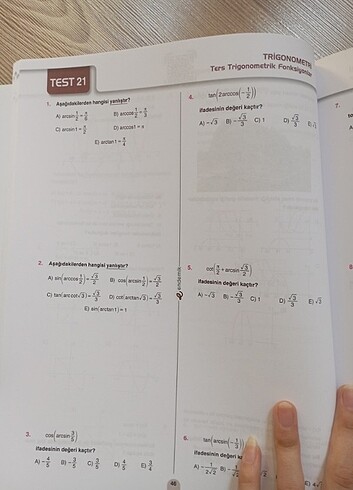 TRİGONOMETRİ
Ters Trigonometrik Fonksiyonlar
TEST 21
1. Aşağıdakilerden hangisi yanlıştır?
A) arcsin 1/2 = π/6 B) arccos 1/2 = π/3
C) arcsin1 = π/2 D) arccos1 = π
E) arctan1 = π/4
2. Aşağıdakilerden hangisi yanlıştır?
A) sin(arccos 1/2) = √3/2 B) cos(arcsin 1/2) = √3/2
C) tan(arccot√3) = √3/3 D) cot(arctan√3) = √3/3
E) sin(arctan1) = 1
3. cos(arcsin 3/5)
ifadesinin değeri kaçtır?
A) -4/5 B) -3/5 C) 3/5 D) 4/5 E) 3/4
4. tan(2arccos(-1/2))
ifadesinin değeri kaçtır?
A) -√3 B) -√3/3 C) 1 D) √3/3 E) √
endemik
5. cot(π/2 + arcsin √3/2)
ifadesinin değeri kaçtır?
A) -√3 B) -√3/3 C) 1 D) √3/3 E) √3
6. tan(arcsin(-1/3))
ifadesinin değeri kaç
A) -1/2√2 B)
7.
46